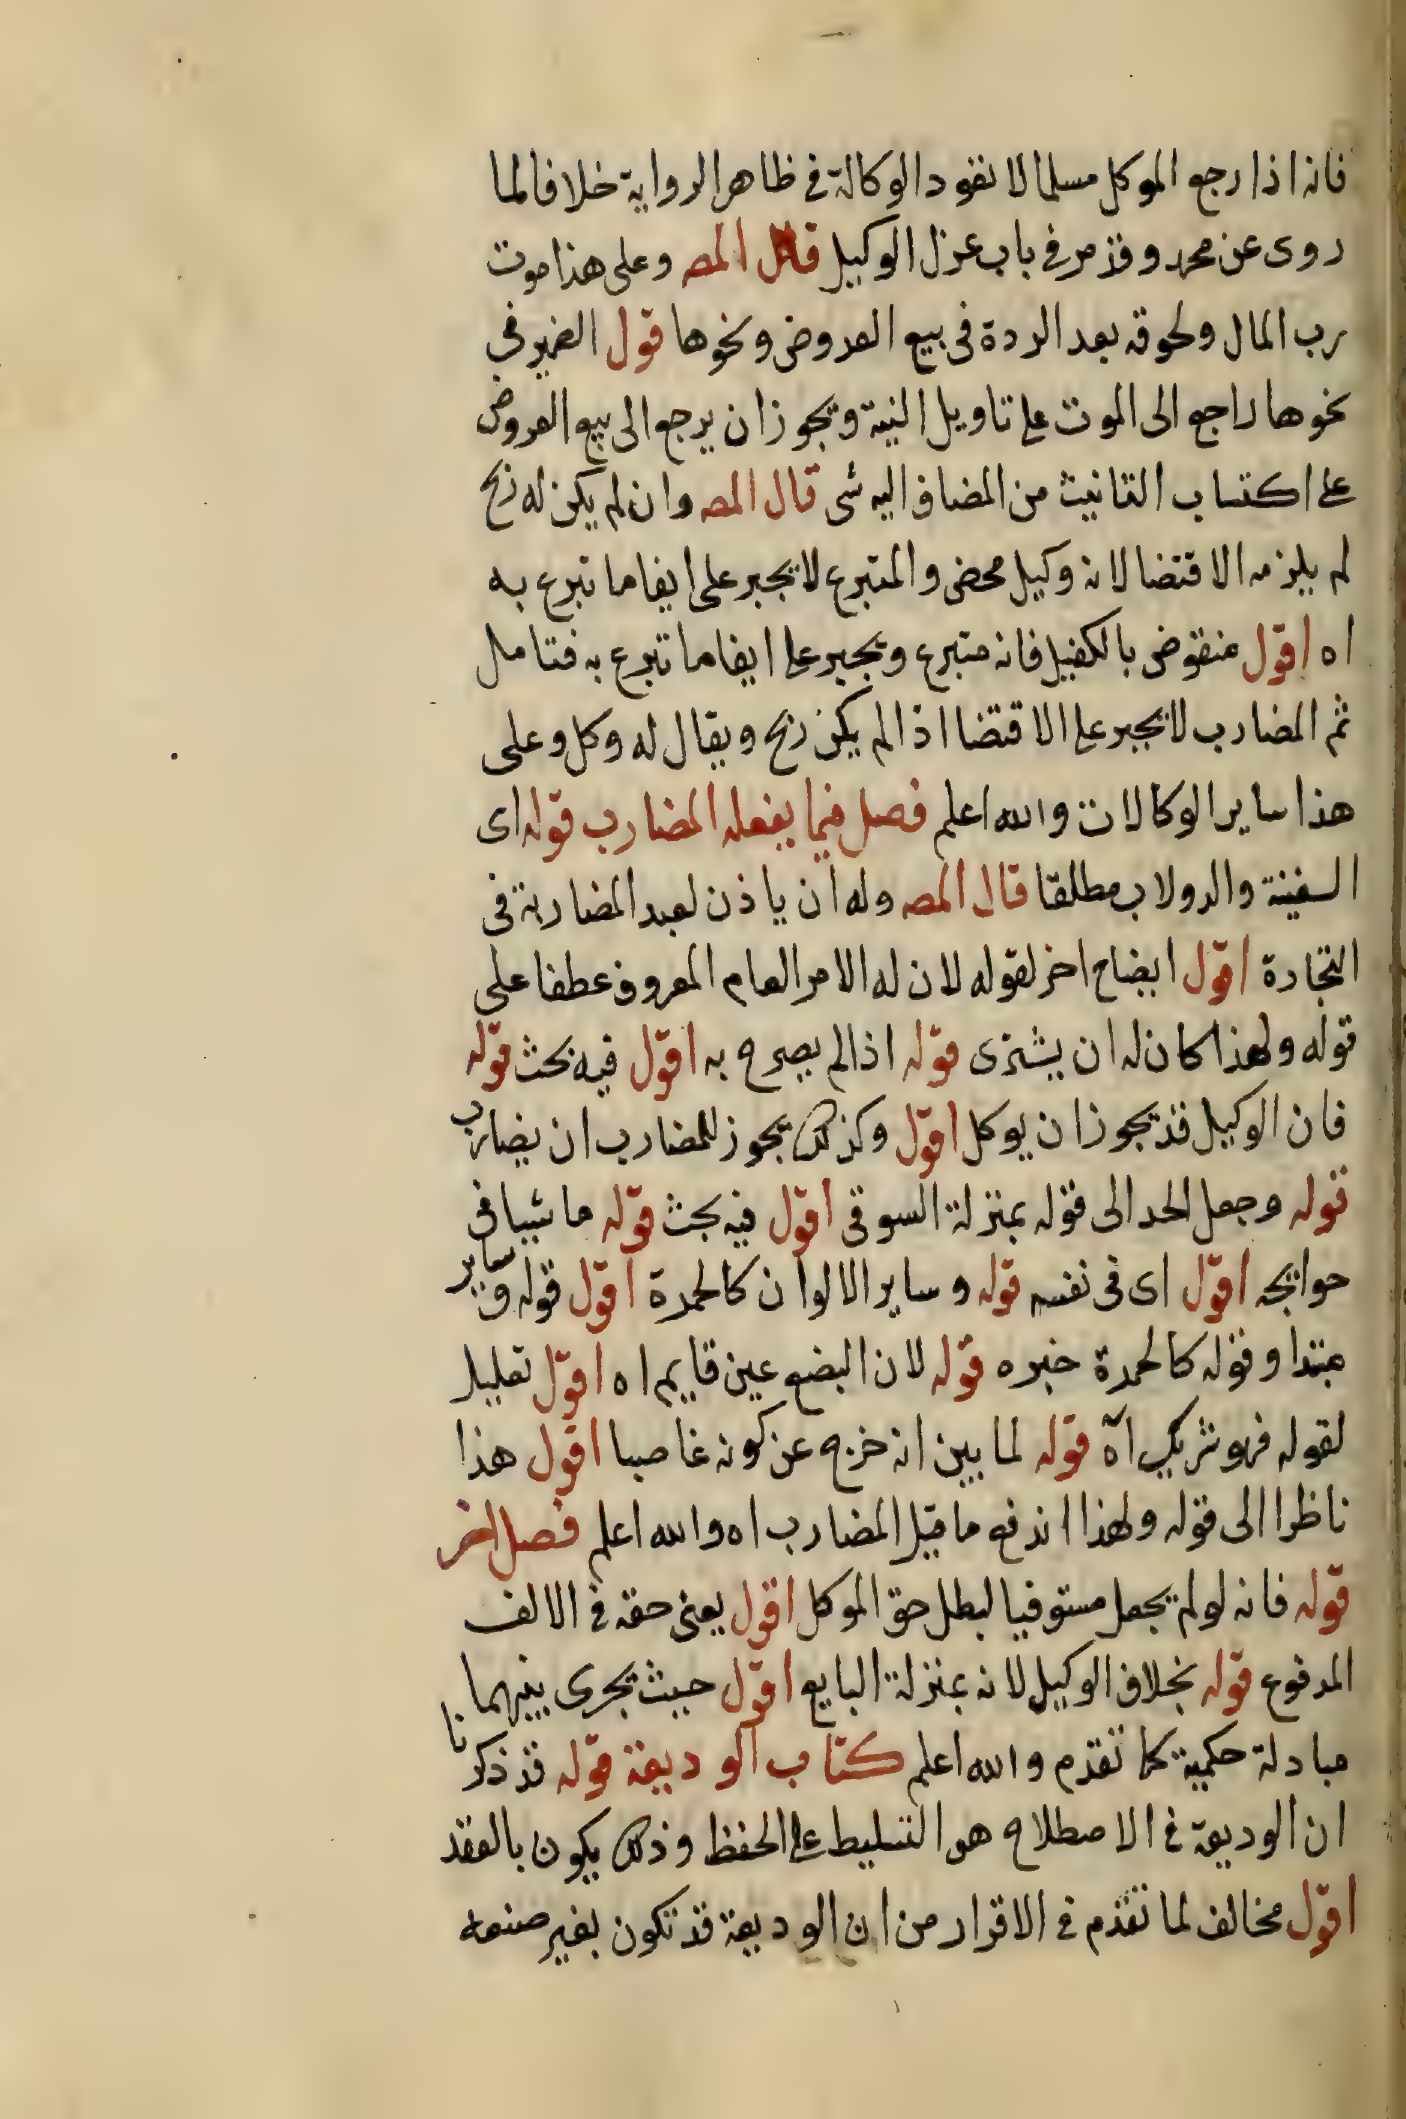 فانه اذا رجع الموكل مسلما لا تعود الوكالة فى ظاهر الرواية خلافا لما
روى عن محمد وقد مر فى باب عزل الوكيل قال المصـ وعلى هذا موت
رب المال ولحوقه بعد الردة فى بيع العروض ونحوها قول الضمير فى
نحوها راجع الى الموت على تاويل المنية ويجوز ان يرجع الى بيع العروض
على اكتساب التانيث من المضاف اليه شى قال المصـ وان لم يكن له ربح
لم يلزمه الاقتضا لانه وكيل محض والمتبرع لا يجبر على ايفا ما تبرع به
اه اقول منقوض بالكفيل فانه متبرع ويجبر على ايفا ما تبرع به فتامل
ثم المضارب لا يجبر على الاقتضا اذا لم يكن ربح ويقال له وكل وعلى
هذا ساير الوكالات والله اعلم فصل فيما يفعله المضارب قوله اى
السفينة والدولاب مطلقا قال المصـ وله ان ياذن لعبد المضاربة فى
التجارة اقول ايضاح اخر لقوله لان له الامر العام المعروف عطفا على
قوله ولهذا كان له ان يشترى قوله اذا لم يصرح به اقول فيه بحث قوله
فان الوكيل قد يجوز ان يوكل اقول وكذلك يجوز للمضارب ان يضارب
قوله وجعل الحد الى قوله بمنزلة السوقى اقول فيه بحث قوله ماشيا فى
حوايجه اقول اى فى نفسه قوله وساير الالوان كالحمرة اقول قوله وساير
مبتدا وقوله كالحمرة خبره قوله لان البضع عين قايم اه اقول تعليل
لقوله فهو شريك آه قوله لما بين انه خرج عن كونه غاصبا اقول هذا
ناظرا الى قوله ولهذا اندفع ما قيل المضارب اه والله اعلم فصل اخر
قوله فانه لو لم يجعل مستوفيا لبطل حق الموكل اقول يعنى حقه فى الالف
المدفوع قوله بخلاف الوكيل لانه بمنزلة البايع اقول حيث يجرى بينهما
مبادلة حكمية كما تقدم والله اعلم كتاب الوديعة قوله قد ذكرنا
ان الوديعة فى الاصطلاح هو التسليط على الحفظ وذلك يكون بالعقد
اقول مخالف لما تقدم فى الاقرار من ان الوديعة قد تكون بغير صنعه